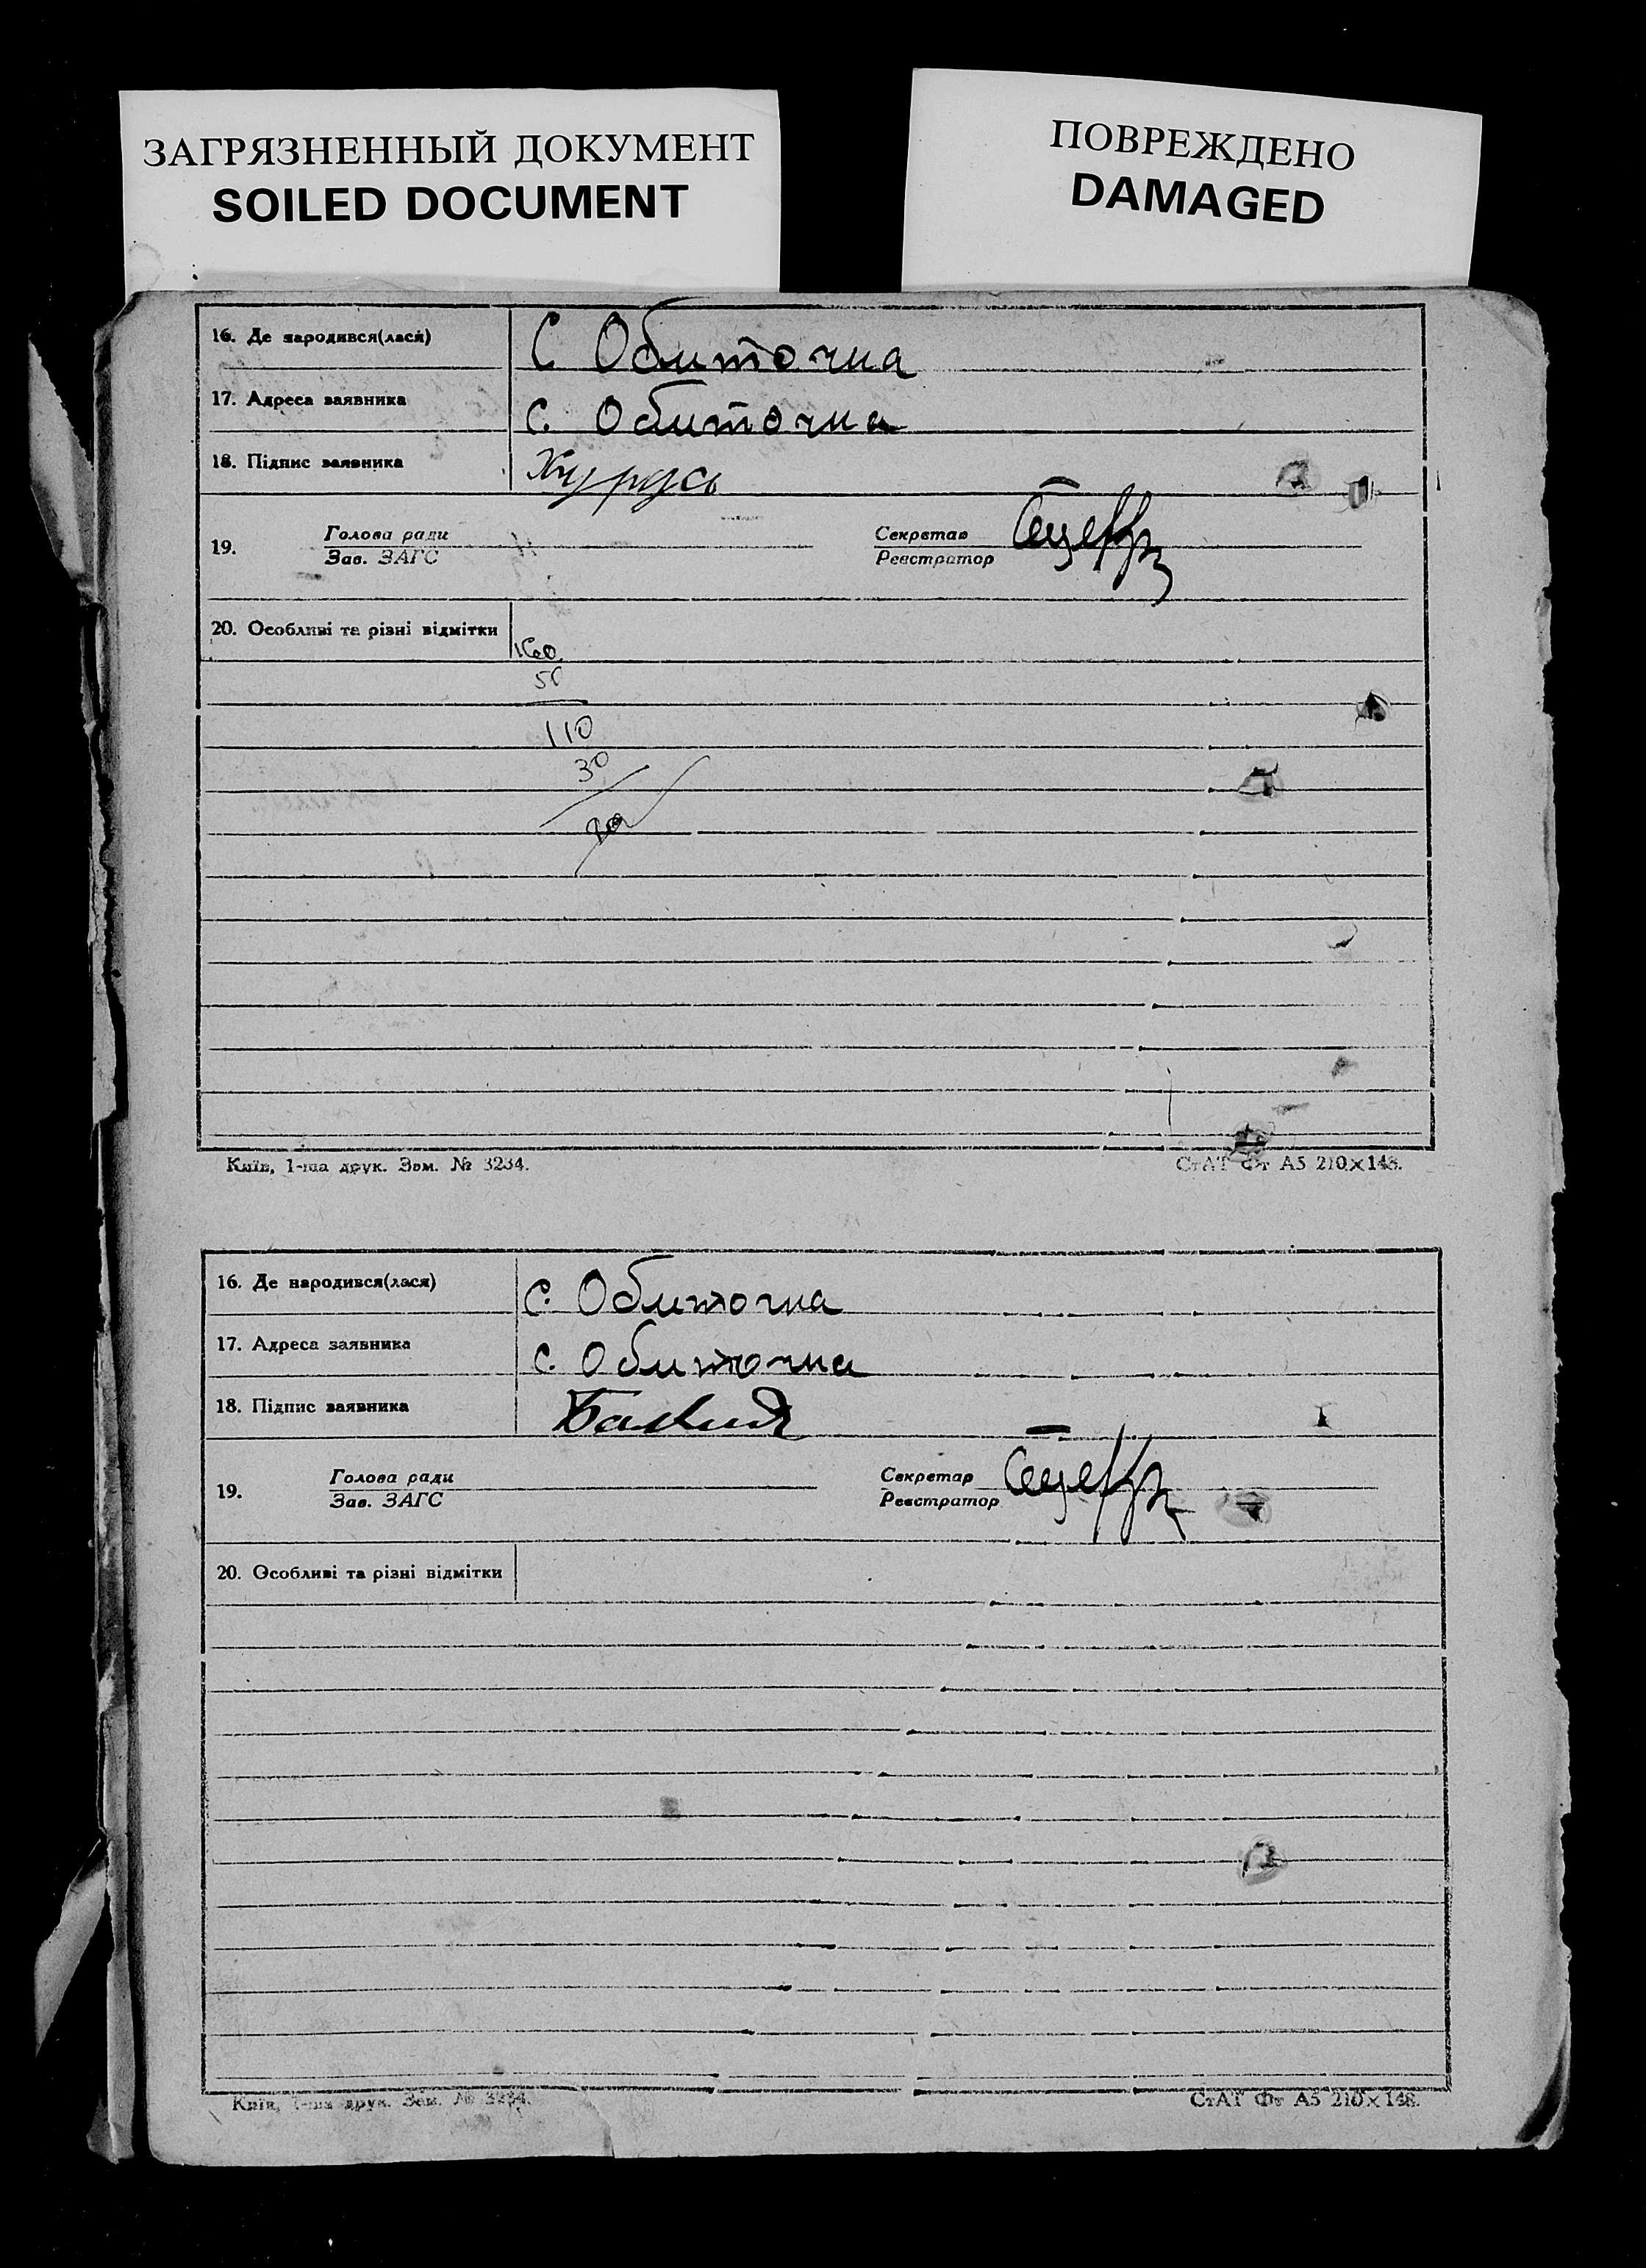 ЗАГРЯЗНЕННЫЙ ДОКУМЕНТ
SOILED DOCUMENT
ПОВРЕЖДЕНО
DAMAGED
16. Де народився(лася) С Обиточна
17. Адреса заявника с. Обиточна
18. Підпис заявника
19. Голова ради Секретар
Зав. ЗАГС Реєстратор
20. Особливі та різні відмітки
50
110
30
Київ, 1-ша друк. Зам. № 3234. СтАТ Фт А5 210×148.
16. Де народився(лася) с. Обиточна
17. Адреса заявника с. Обиточна
18. Підпис заявника
19. Голова ради Секретар
Зав. ЗАГС Реєстратор
20. Особливі та різні відмітки
Київ, 1-ша друк. Зам. № 3234. СтАТ Фт А5 210×148.